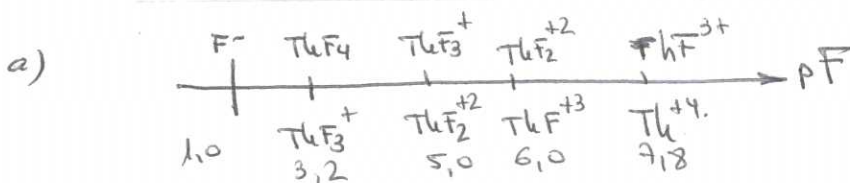 a)
F⁻ ThF₄ ThF₃⁺ ThF₂⁺² ThF³⁺
pF
ThF₃⁺ ThF₂⁺² ThF⁺³ Th⁺⁴.
1,0 3,2 5,0 6,0 7,8